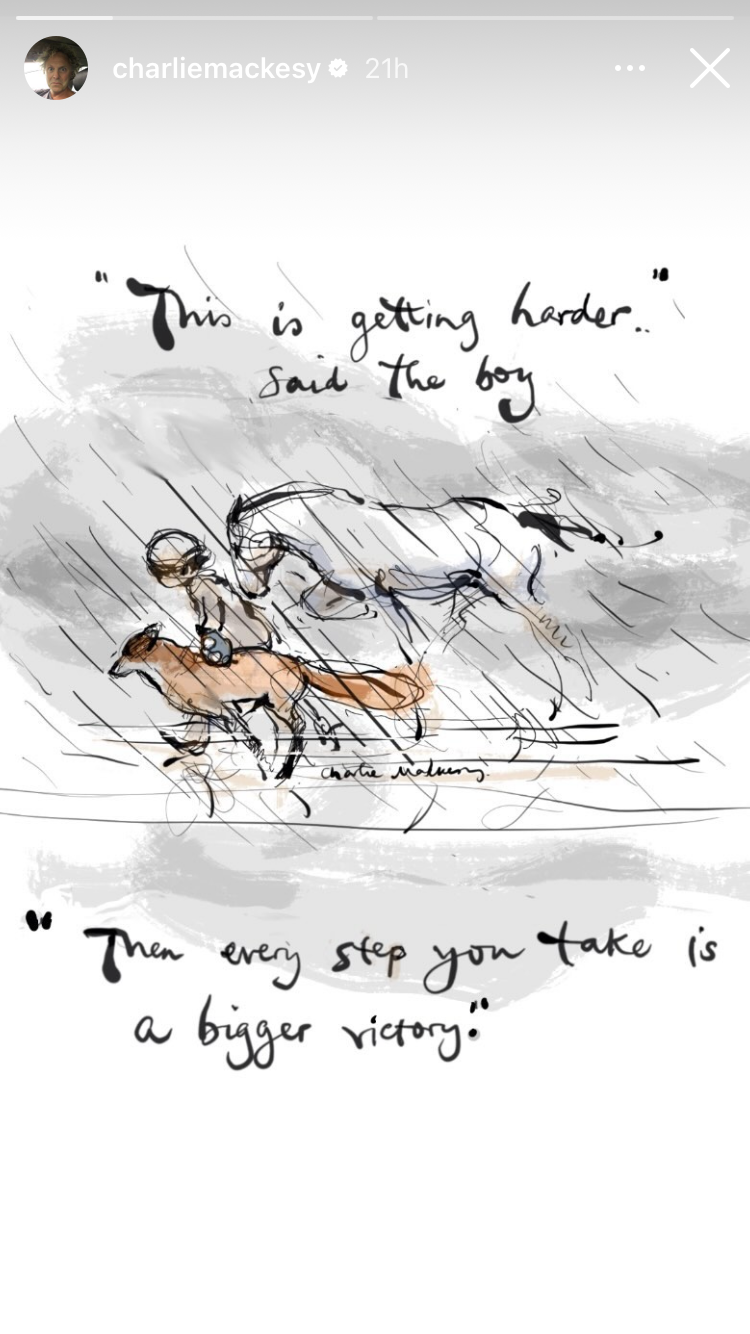 charliemackesy 21h
"This is getting harder.."
said the boy
Charlie Mackesy.
"Then every step you take is
a bigger victory."